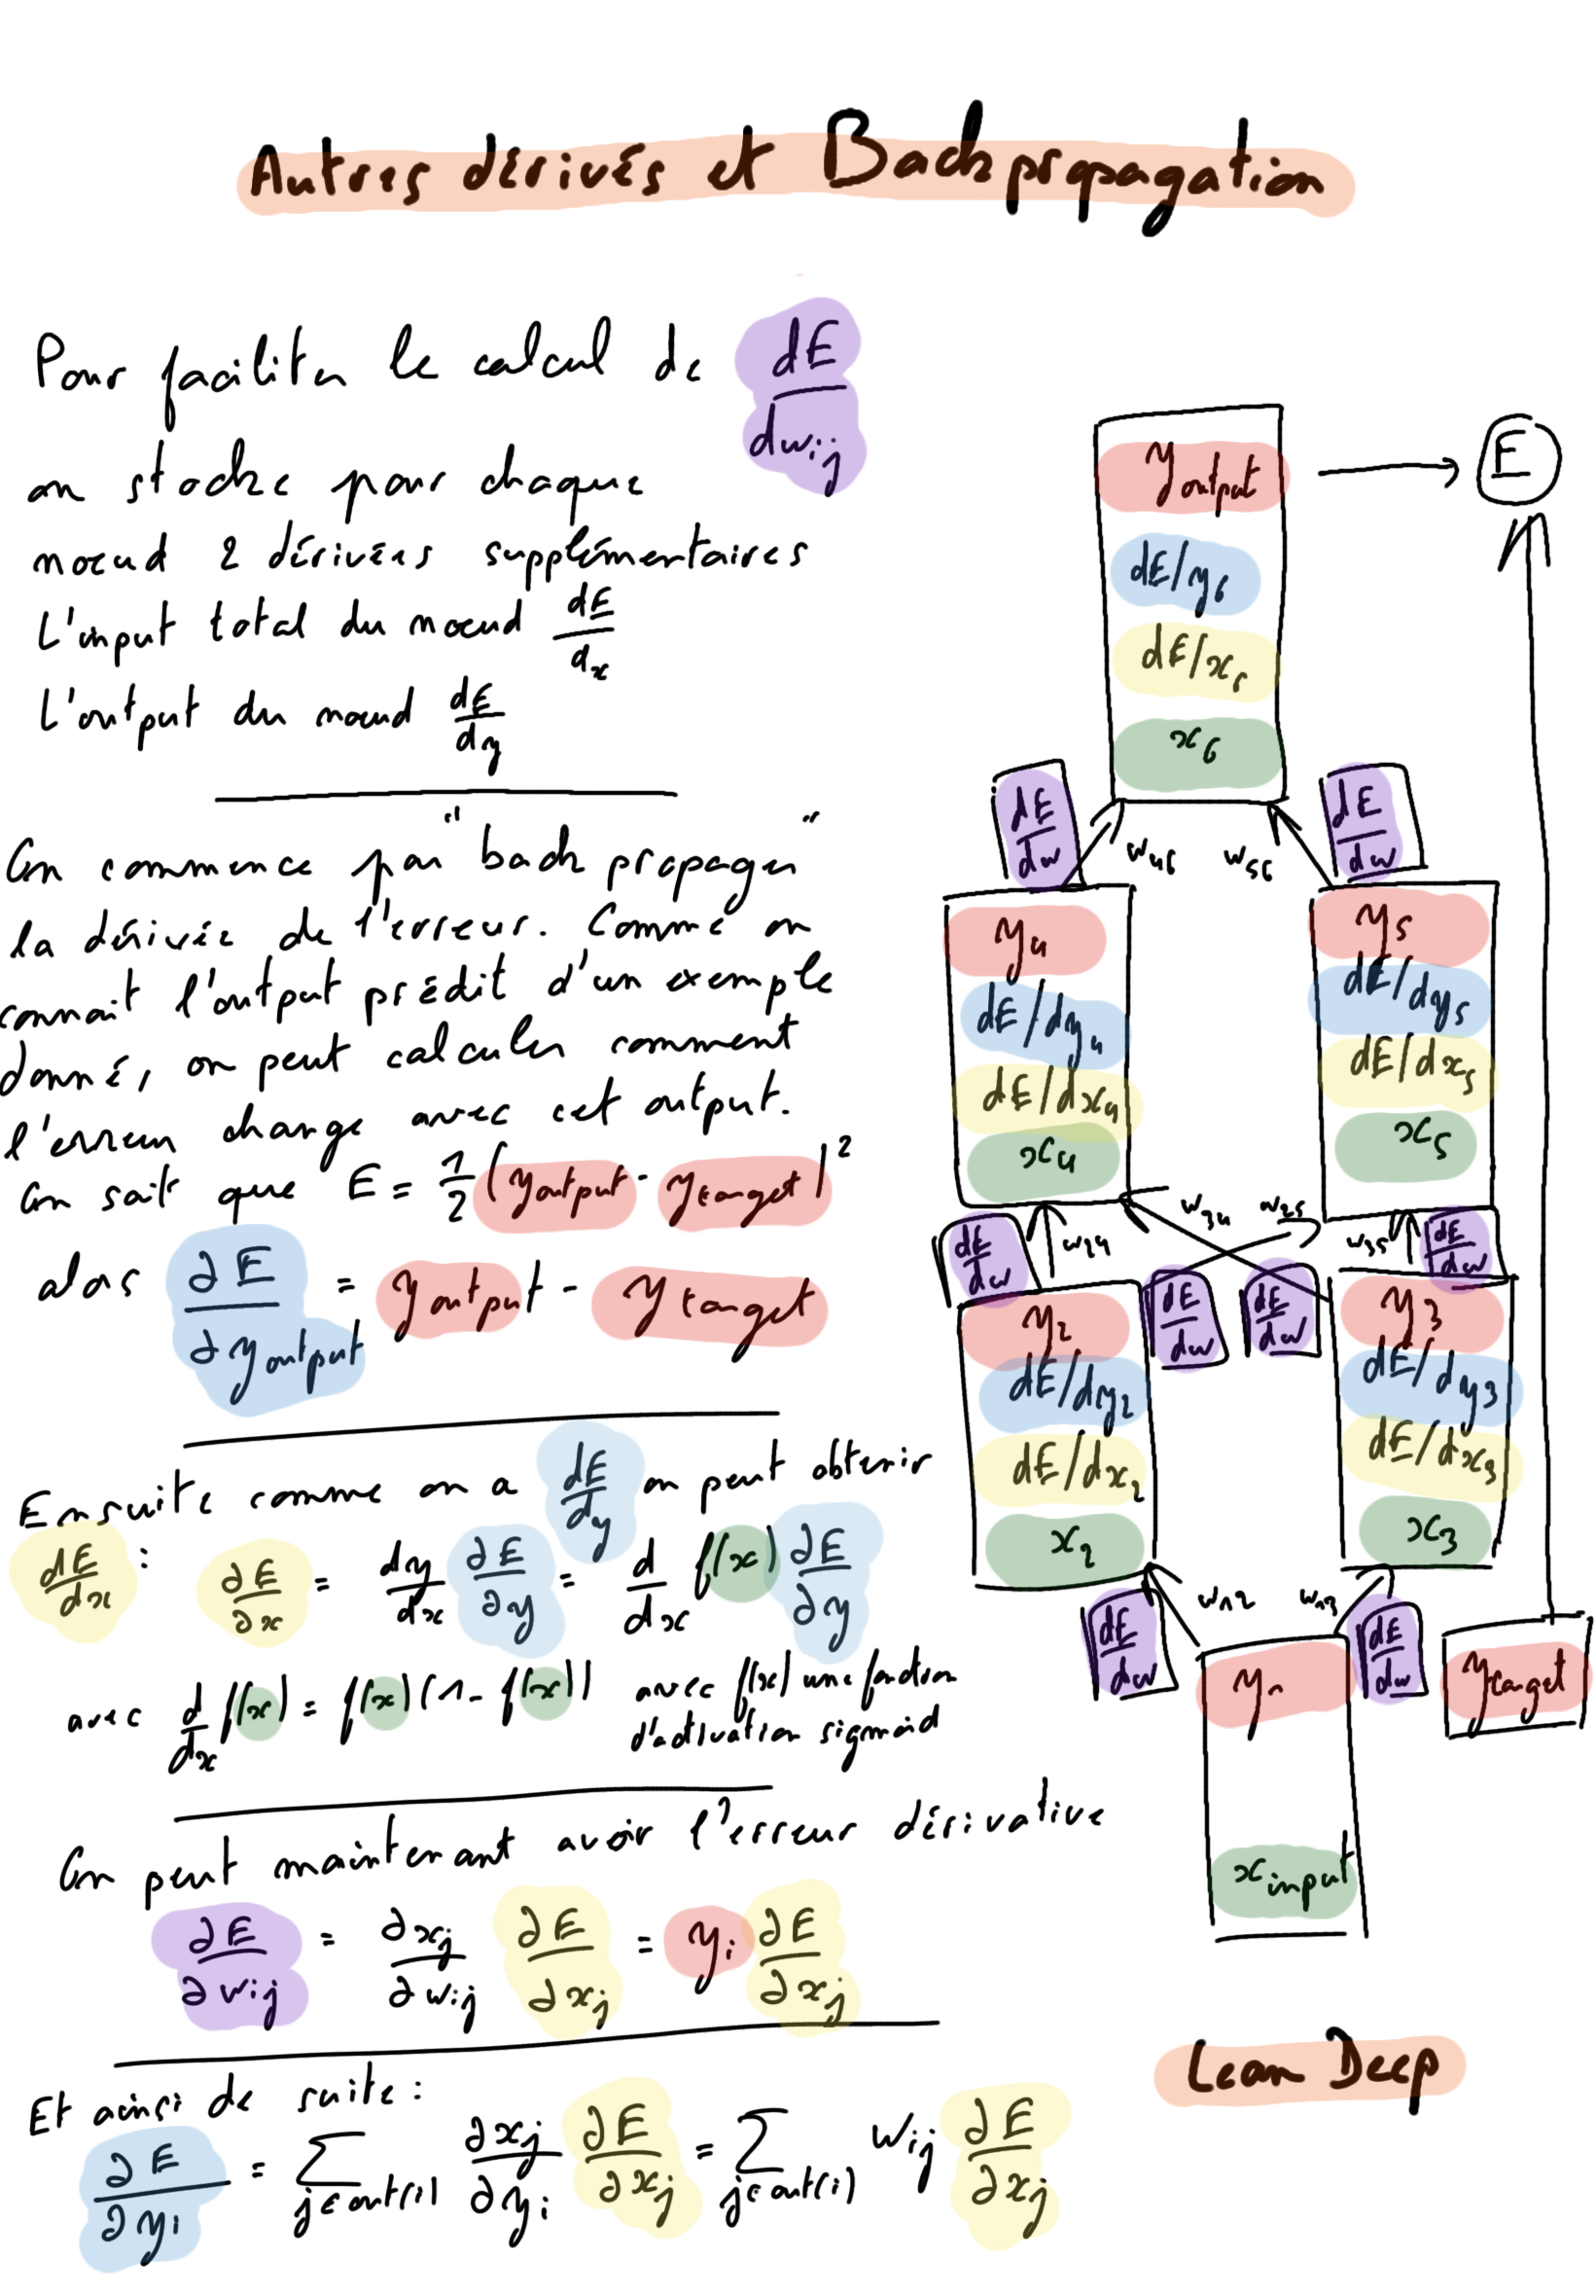 Autres dérivés et Backpropagation
Pour faciliter le calcul de dE/dwij
on stocke pour chaque
noeud 2 dérivées supplémentaires
L'input total du noeud dE/dx
L'output du noeud dE/dy
On commence par "back propager"
la dérivée de l'erreur. Comme on
connait l'output prédit d'un exemple
donné, on peut calculer comment
l'erreur change avec cet output.
On sait que E = 1/2 (youtput - ytarget)²
alors ∂E/∂youtput = youtput - ytarget
Ensuite comme on a dE/dy on peut obtenir
dE/dx : ∂E/∂x = dy/dx ∂E/∂y = d/dx f(x) ∂E/∂y
avec d/dx f(x) = f(x)(1 - f(x)) avec f(x) une fonction
d'activation sigmoid
On peut maintenant avoir l'erreur dérivative
∂E/∂wij = ∂xj/∂wij ∂E/∂xj = yi ∂E/∂xj
Et ainsi de suite :
∂E/∂yi = ∑ j∈out(i) ∂xj/∂yi ∂E/∂xj = ∑ j∈out(i) wij ∂E/∂xj
youtput
E
dE/y6
dE/x6
x6
dE/dw
w46
w56
dE/dw
y4
dE/dy4
dE/dx4
x4
y5
dE/dy5
dE/dx5
x5
dE/dw
w24
w34
w25
w35
dE/dw
y2
dE/dy2
dE/dx2
x2
dE/dw
dE/dw
y3
dE/dy3
dE/dx3
x3
dE/dw
w12
w13
dE/dw
y1
xinput
ytarget
Lean Deep